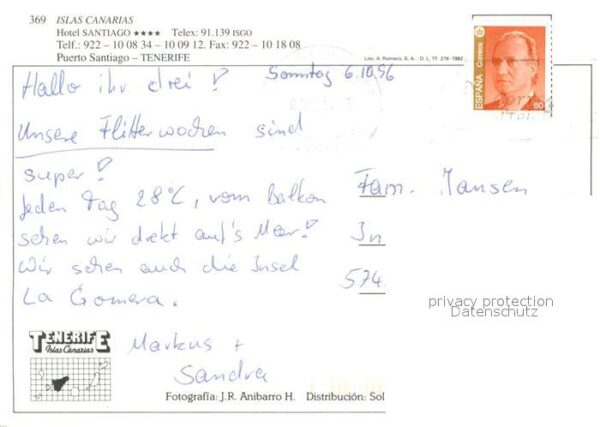 369 ISLAS CANARIAS
Hotel SANTIAGO ★★★★ Telex: 91.139 ISGO
Telf.: 922 – 10 08 34 – 10 09 12. Fax: 922 – 10 18 08
Puerto Santiago – TENERIFE
Lito. A. Romero, S. A. - D. L. TF. 278- 1992
ESPAÑA
Correos
60
Sonntag 6.10.96
Hallo ihr drei!
Unsere Flitterwochen sind
super!
Jeden Tag 28°C, vom Balkon
sehen wir direkt auf's Meer!
Wir sehen auch die Insel
La Gomera.
Markus +
Sandra
Fam. Mansen
In
574
privacy protection
Datenschutz
TENERIFE
Islas Canarias
Fotografía: J.R. Anibarro H. Distribución: Sol